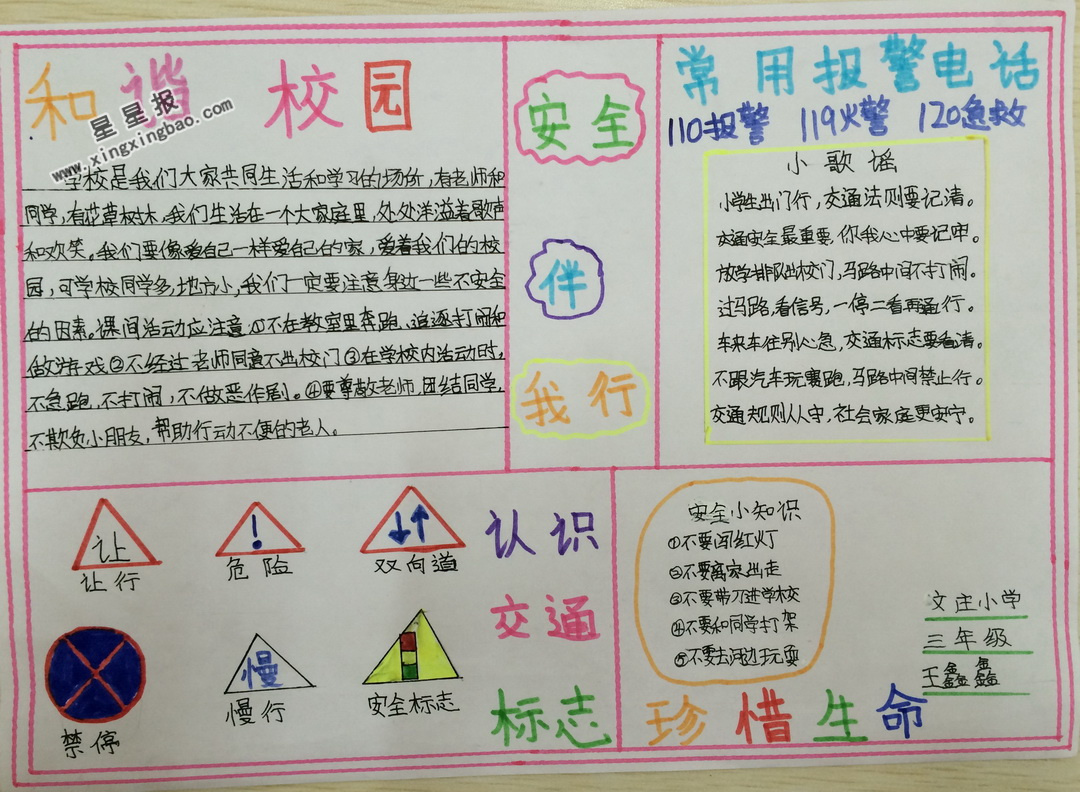 和谐 校园
星星报
www.xingxingbao.com
学校是我们大家共同生活和学习的场所,有老师和
同学,有花草树木,我们生活在一个大家庭里,处处洋溢着歌声
和欢笑。我们要像爱自己一样爱自己的家,爱着我们的校
园,可学校同学多,地方小,我们一定要注意身边一些不安全
的因素。课间活动应注意:①不在教室里奔跑、追逐打闹和
做游戏②不经过老师同意不出校门③在学校内活动时,
不急跑,不打闹,不做恶作剧。④要尊敬老师,团结同学,
不欺负小朋友,帮助行动不便的老人。
安全
伴
我行
常用报警电话
110报警 119火警 120急救
小歌谣
小学生出门行,交通法则要记清。
交通安全最重要,你我心中要记牢。
放学排队出校门,马路中间不打闹。
过马路,看信号,一停二看再通行。
车来车往别心急,交通标志要看清。
不跟汽车玩赛跑,马路中间禁止行。
交通规则人人守,社会家庭更安宁。
让
让行
!
危险
双向道
禁停
慢
慢行
安全标志
认识
交通
标志
安全小知识
①不要闯红灯
②不要离家出走
③不要带刀进学校
④不要和同学打架
⑤不要去河边玩耍
文庄小学
三年级
王鑫鑫
珍惜生命